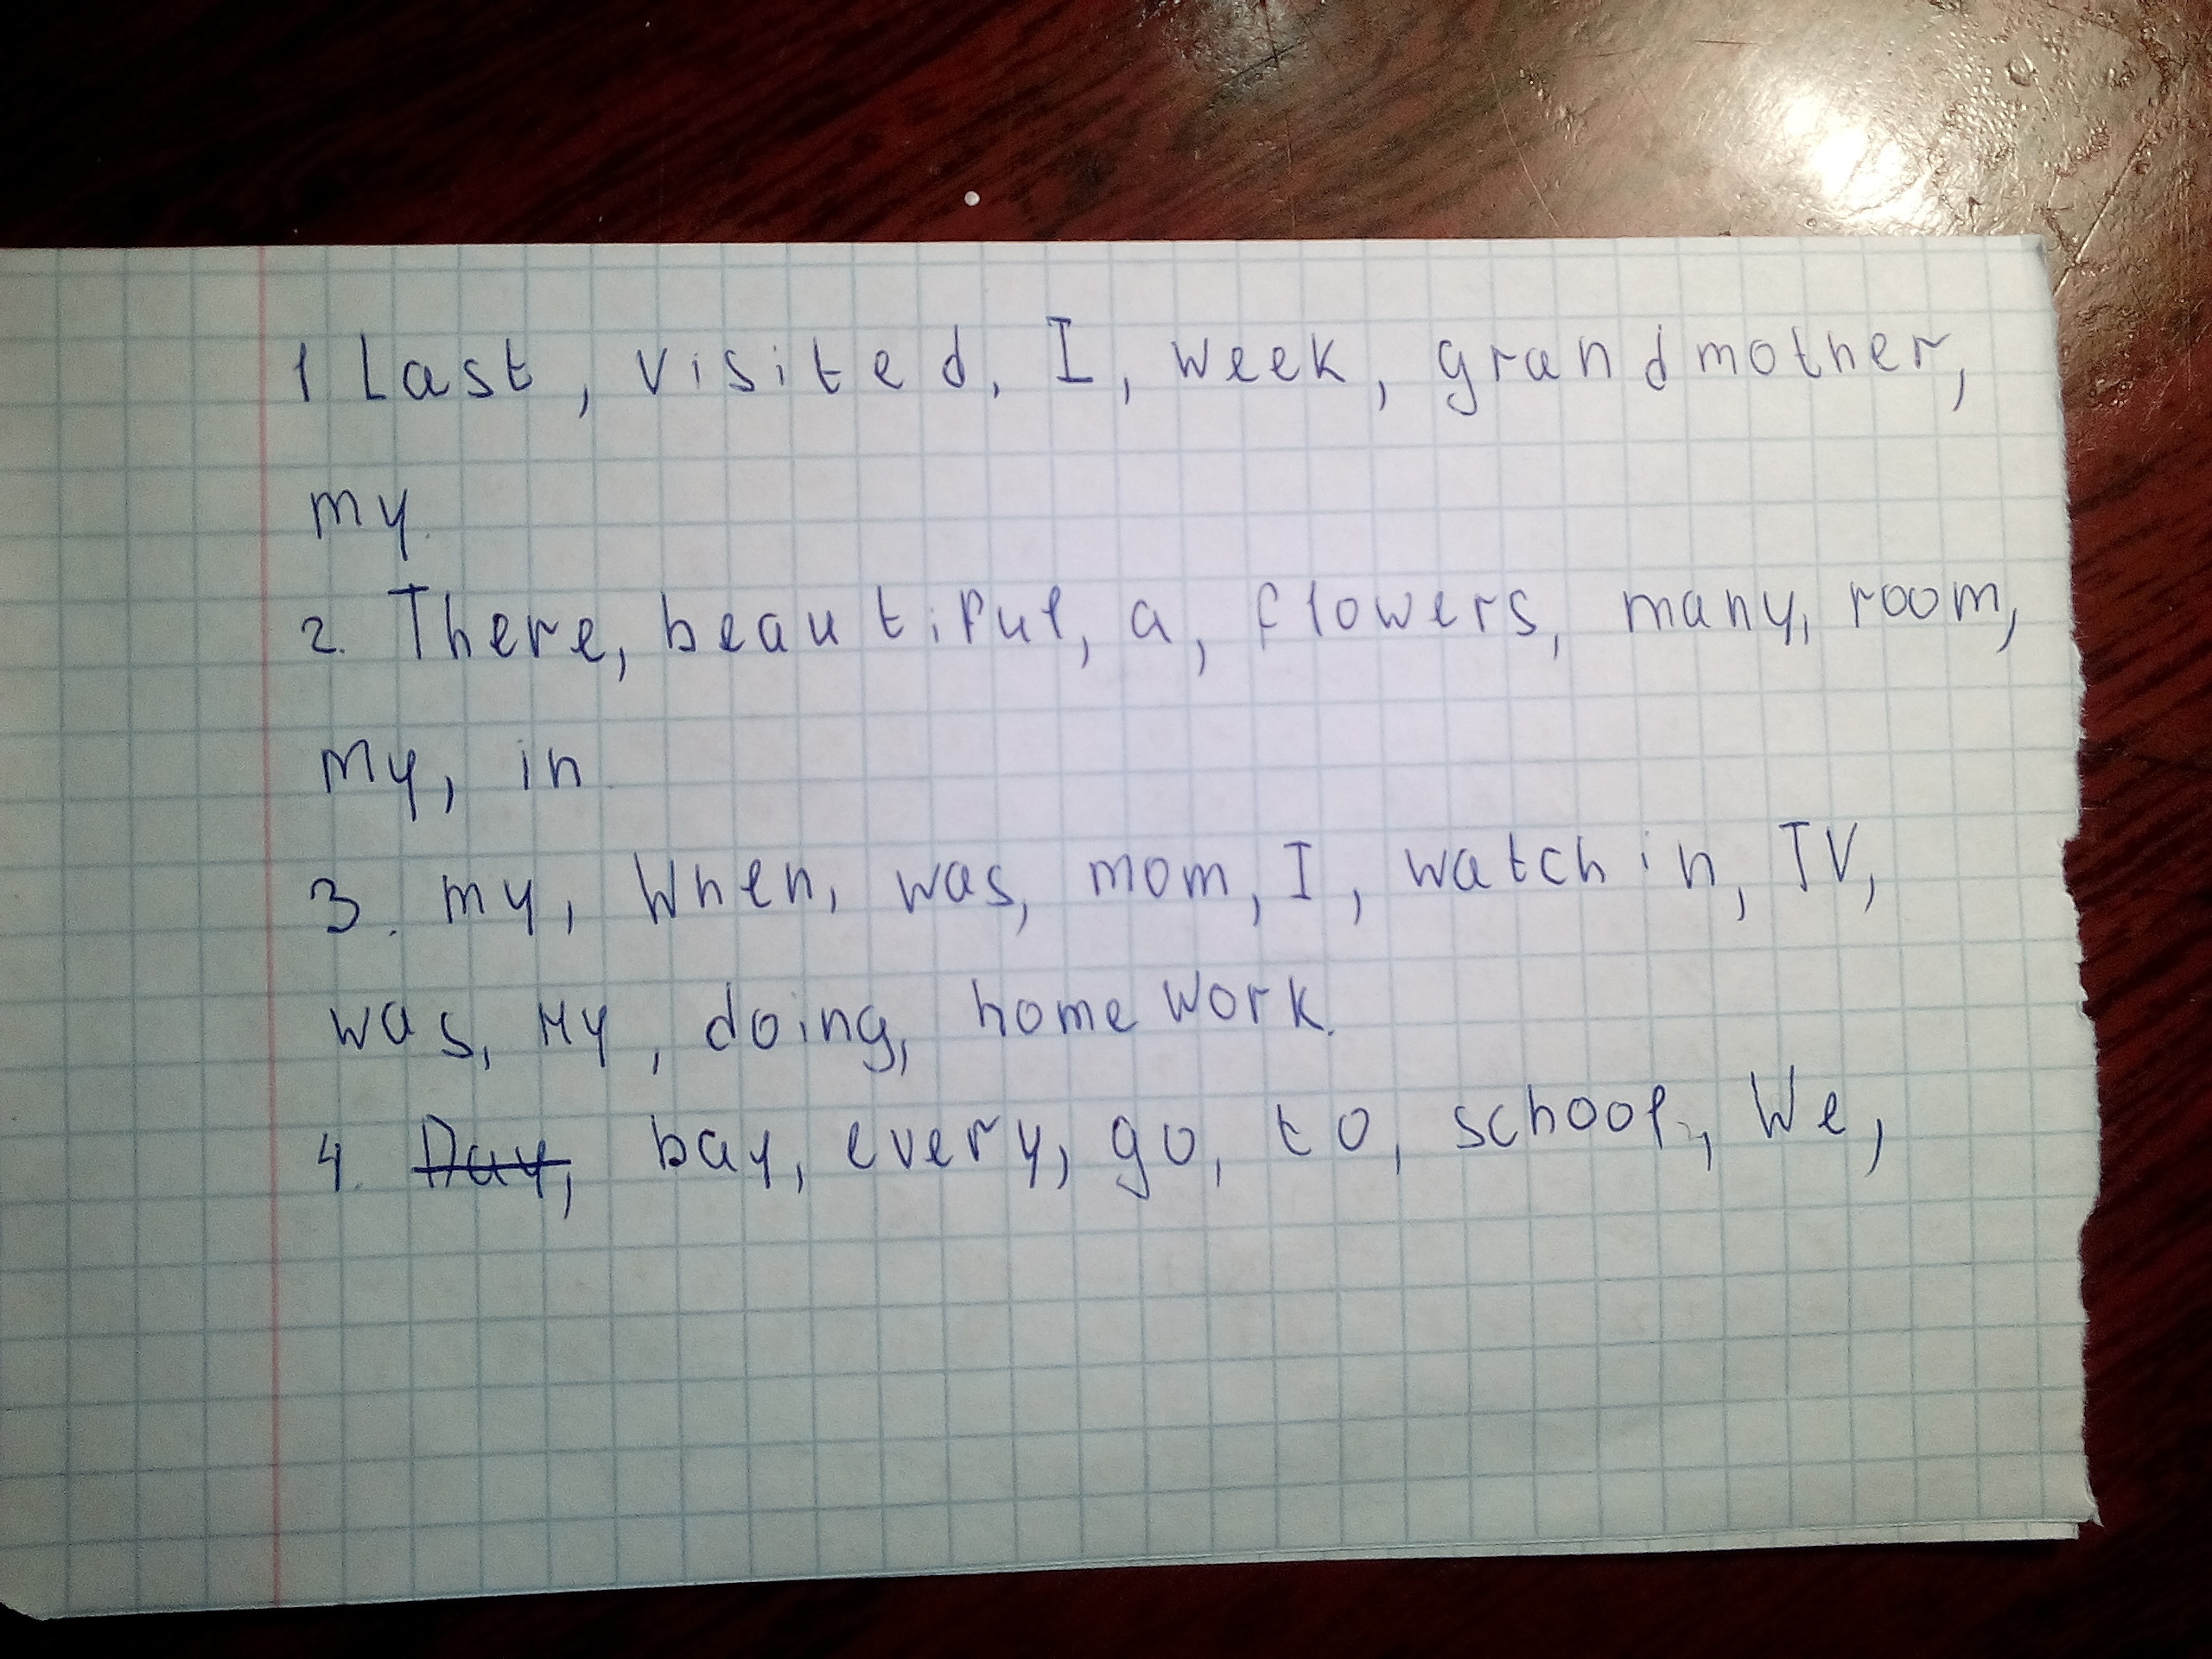 1 Last, visited, I, week, grandmother,
my.
2. There, beautiful, a, flowers, many, room,
my, in
3. my, When, was, mom, I, watchin, TV,
was, my, doing, homework.
4. Day, bay, every, go, to, school, We,